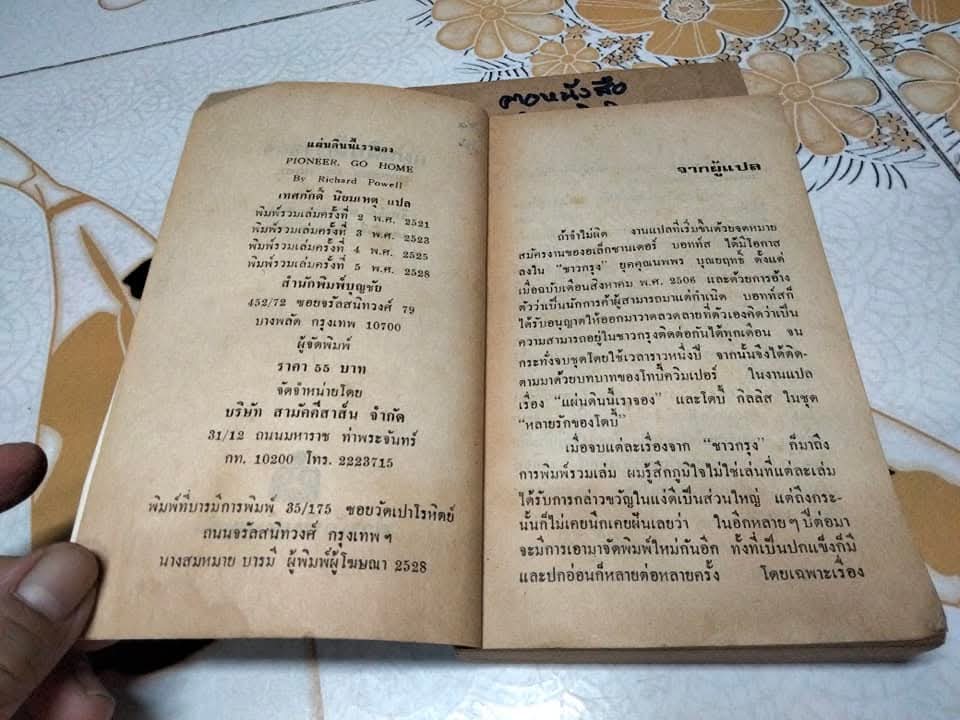 ตอหนังสือ
แผ่นดินนี้เราจอง
PIONEER, GO HOME
By Richard Powell
เทศภักดิ์ นิยมเหตุ แปล
พิมพ์รวมเล่มครั้งที่ 2 พ.ศ. 2521
พิมพ์รวมเล่มครั้งที่ 3 พ.ศ. 2523
พิมพ์รวมเล่มครั้งที่ 4 พ.ศ. 2525
พิมพ์รวมเล่มครั้งที่ 5 พ.ศ. 2528
สำนักพิมพ์บุญชัย
452/72 ซอยจรัลสนิทวงศ์ 79
บางพลัด กรุงเทพ 10700
ผู้จัดพิมพ์
ราคา 55 บาท
จัดจำหน่ายโดย
บริษัท สามัคคีสาส์น จำกัด
31/12 ถนนมหาราช ท่าพระจันทร์
กท. 10200 โทร. 2223715
พิมพ์ที่บารมีการพิมพ์ 35/175 ซอยวัดเปาโรหิตย์
ถนนจรัลสนิทวงศ์ กรุงเทพ ฯ
นางสมหมาย บารมี ผู้พิมพ์ผู้โฆษณา 2528
จากผู้แปล
ถ้าจำไม่ผิด งานแปลที่เริ่มขึ้นด้วยจดหมาย
สมัครงานของอเล็กซานเดอร์ บอทท์ส ได้มีโอกาส
ลงใน "ชาวกรุง" ยุคคุณนพพร บุณยฤทธิ์ ตั้งแต่
เมื่อฉบับเดือนสิงหาคม พ.ศ. 2506 และด้วยการอ้าง
ตัวว่าเป็นนักการค้าผู้สามารถมาแต่กำเนิด บอทท์สก็
ได้รับอนุญาตให้ออกมาวาดลวดลายที่ตัวเองคิดว่าเป็น
ความสามารถอยู่ในชาวกรุงติดต่อกันได้ทุกเดือน จน
กระทั่งจบชุดโดยใช้เวลาราวหนึ่งปี จากนั้นจึงได้ติด-
ตามมาด้วยบทบาทของโทบี้ควิมเปอร์ ในงานแปล
เรื่อง "แผ่นดินนี้เราจอง" และโดบี้ กิลลิส ในชุด
"หลายรักของโดบี้"
เมื่อจบแต่ละเรื่องจาก "ชาวกรุง" ก็มาถึง
การพิมพ์รวมเล่ม ผมรู้สึกภูมิใจไม่ใช่เล่นที่แต่ละเล่ม
ได้รับการกล่าวขวัญในแง่ดีเป็นส่วนใหญ่ แต่ถึงกระ-
นั้นก็ไม่เคยนึกเคยฝันเลยว่า ในอีกหลาย ๆ ปีต่อมา
จะมีการเอามาจัดพิมพ์ใหม่กันอีก ทั้งที่เป็นปกแข็งก็มี
และปกอ่อนก็หลายต่อหลายครั้ง โดยเฉพาะเรื่อง